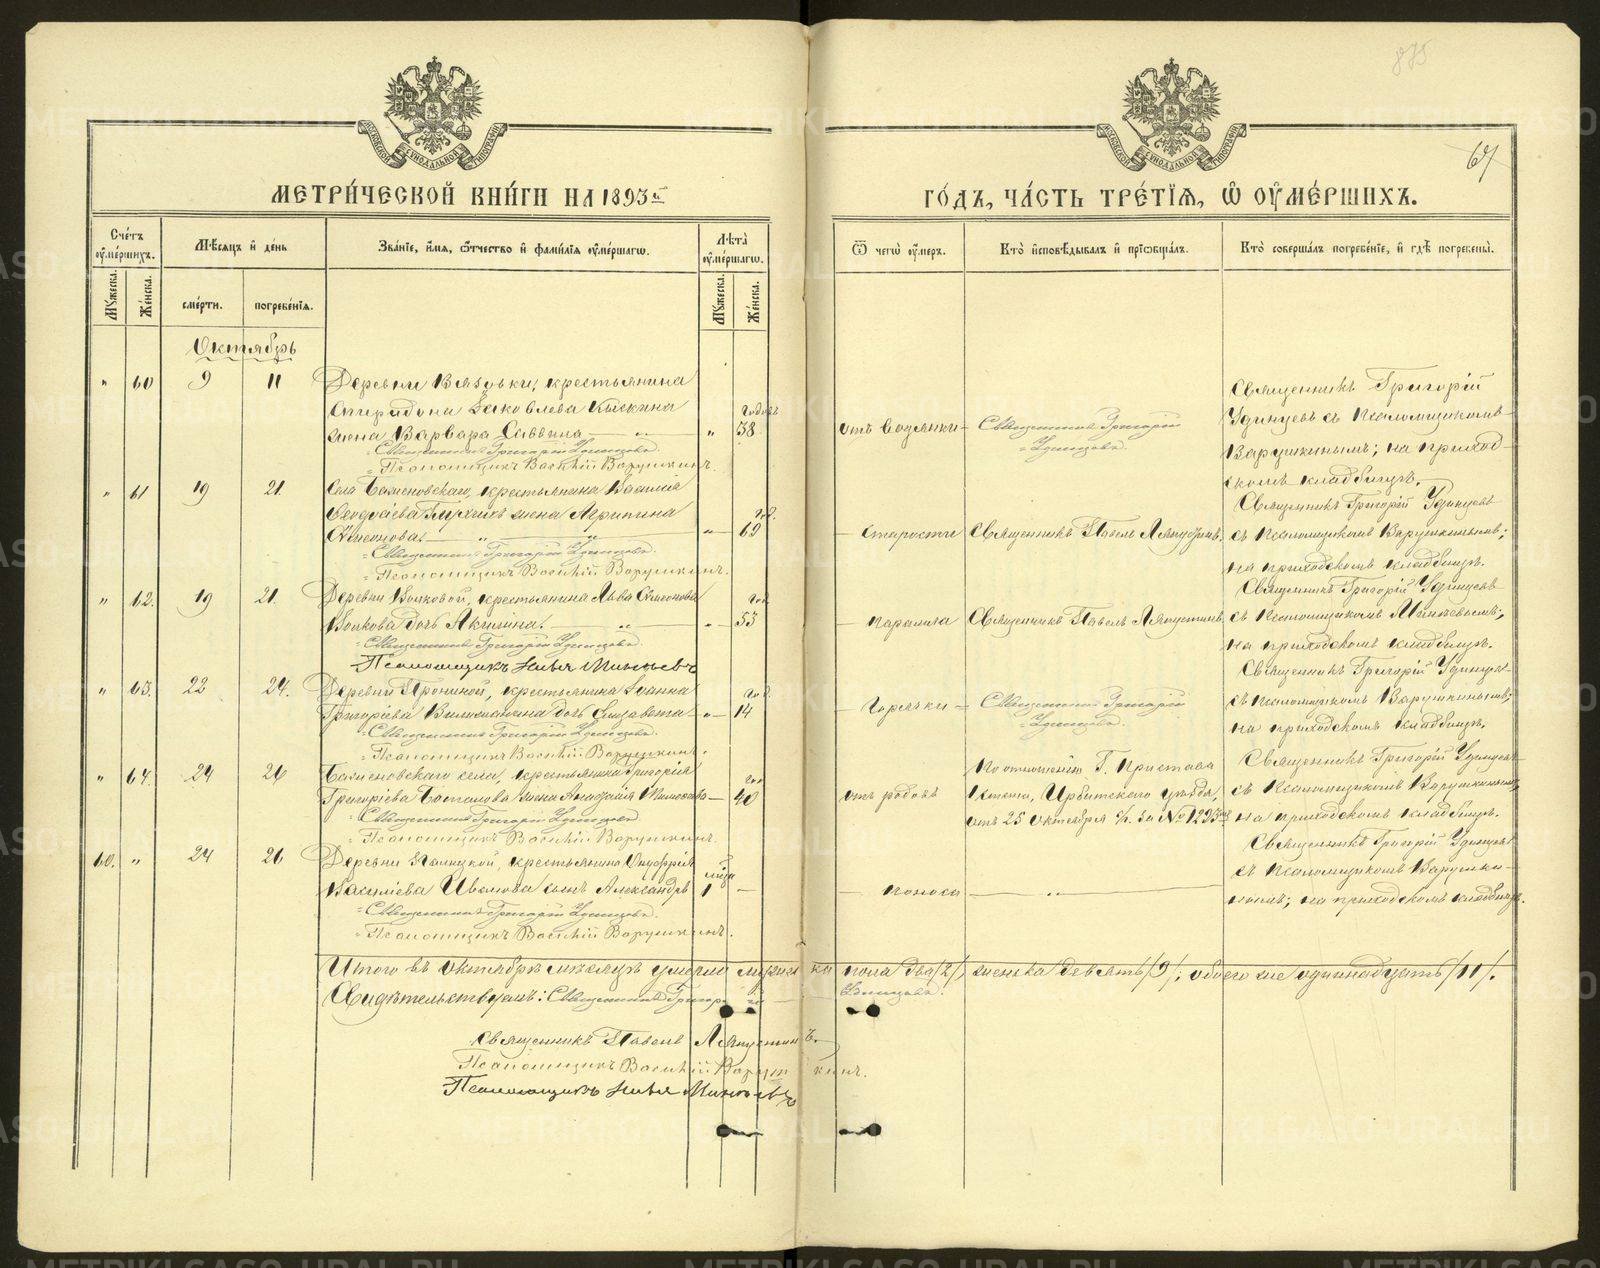 875
67
МОСКОВСКОЙ СѴНОДАЛЬНОЙ ТИПОГРАФІИ
МОСКОВСКОЙ СѴНОДАЛЬНОЙ ТИПОГРАФІИ
МЕТРИ́ЧЕСКОЙ КНИ́ГИ НА 1893й
ГО́ДЪ, ЧА́СТЬ ТРЕ́ТІЯ, Ѽ ОУМЕ́РШИХЪ.
Сче́тъ оуме́ршихъ.
Мѣсяцъ и҆ день
Зва́нїе, и҆́мя, ѻ҆́тчество и҆ фами́лїя оуме́ршагѡ.
Лѣта̀ оуме́ршагѡ.
Ѿ чегѡ̀ оу́меръ.
Кто̀ и҆сповѣ́дывалъ и҆ прїѻбща́лъ.
Кто̀ соверша́лъ погребе́нїе, и҆ гдѣ̀ погребены̀.
Мꙋ́жеска.
Же́нска.
сме́рти.
погребе́нїѧ.
Мꙋ́жеска.
Же́нска.
Октябрь
" 60 9 11 Деревни Вязовки, крестьянина
Спиридона Яковлева Кыскина
жена Варвара Саввина " 38 годовъ
Священникъ Григорій Удинцевъ.
Псаломщикъ Василій Варушкинъ.
отъ водянки
Священникъ Григорій
Удинцевъ.
Священникъ Григорій
Удинцевъ съ Псаломщикомъ
Варушкинымъ; на приход-
скомъ кладбищѣ.
" 61 19 21. Села Баженовскаго, крестьянина Василія
жена Агрипина
Симеонова. " 69 год.
Священникъ Григорій Удинцевъ.
Псаломщикъ Василій Варушкинъ.
старости
Священникъ Павелъ Ляпустинъ.
Священникъ Григорій Удинцевъ
съ Псаломщикомъ Варушкинымъ;
на приходскомъ кладбищѣ.
" 62. 19 21. Деревни Волковой, крестьянина Льва Симеонова
Волкова дочь Акилина. " 53 год.
Священникъ Григорій Удинцевъ.
Псаломщикъ Илья Минѣевъ
паралича
Священникъ Павелъ Ляпустинъ.
Священникъ Григорій Удинцевъ
съ Псаломщикомъ Минѣевымъ;
на приходскомъ кладбищѣ.
" 63. 22 24. Деревни Прониной, крестьянина Іоанна
Григоріева дочь Елизавета " 14 год.
Священникъ Григорій Удинцевъ.
Псаломщикъ Василій Варушкинъ.
горячки
Священникъ Григорій
Удинцевъ.
Священникъ Григорій Удинцевъ
съ Псаломщикомъ Варушкинымъ;
на приходскомъ кладбищѣ.
" 64. 24 26 Баженовскаго села, крестьянина Григорія
Григоріева жена 40 год
Священникъ Григорій Удинцевъ.
Псаломщикъ Василій Варушкинъ.
отъ родовъ
по отношенію Г. Пристава
Ирбитскаго уѣзда,
отъ 25 Октября с/г. за № 1293
Священникъ Григорій Удинцевъ
съ Псаломщикомъ Варушкинымъ;
на приходскомъ кладбищѣ.
60. " 24 26 Деревни крестьянина Онуфрія
Василіева Иванова сынъ Александръ 1
Священникъ Григорій Удинцевъ.
Псаломщикъ Василій Варушкинъ.
поноса
"
Священникъ Григорій Удинцевъ
съ Псаломщикомъ Варушки-
нымъ; на приходскомъ кладбищѣ.
Итого въ октябрѣ мѣсяцѣ умерло мужска пола два /2/, женска девять /9/; обоего же одинадцать /11/.
Свидѣтельствуемъ: Священникъ Григорій Удинцевъ.
Священникъ Павелъ Ляпустинъ.
Псаломщикъ Василій Варушкинъ.
Псаломщикъ Илья Минѣевъ